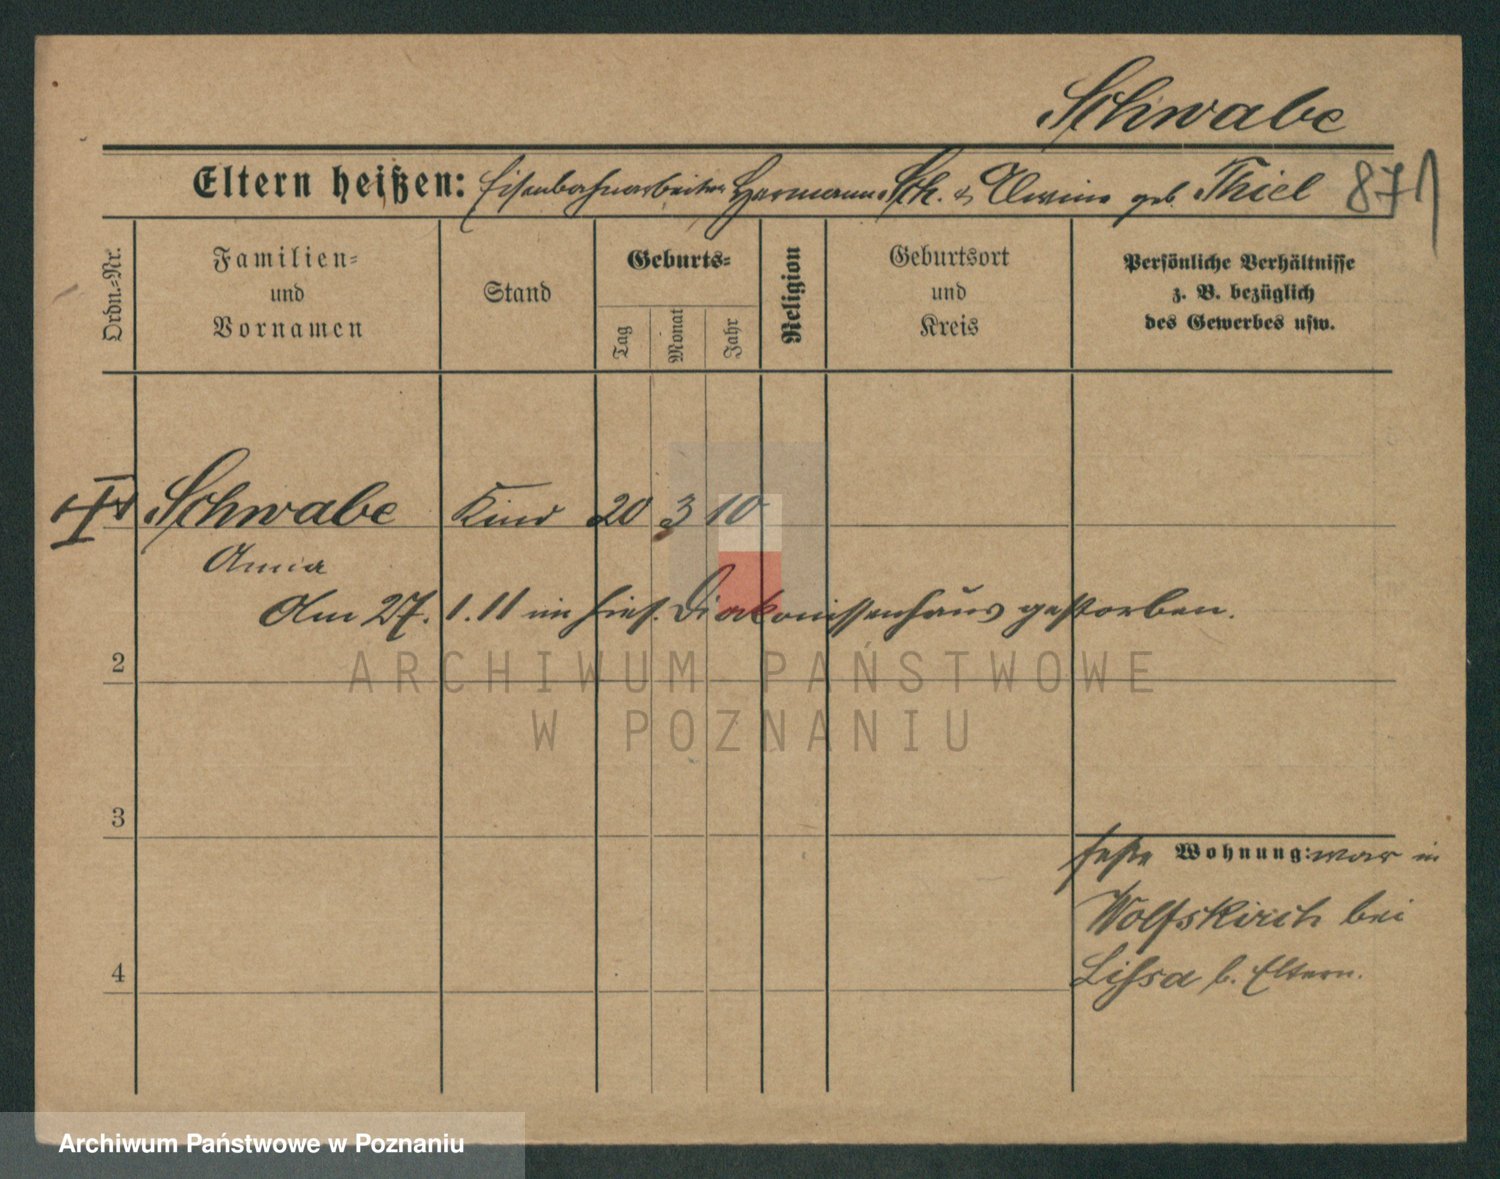 Schwabe
Eltern heißen: Eisenbahnarbeiter Hermann Sch. & Alwine geb. Thiel 871
Ordn.-Nr.
Familien- und Vornamen
Stand
Geburts-
Tag
Monat
Jahr
Religion
Geburtsort und Kreis
Persönliche Verhältnisse
z. B. bezüglich
des Gewerbes usw.
Schwabe Kind 20 3 10
Anna
Am 27. 1. 11 im hies. Diakonissenhaus gestorben.
2
ARCHIWUM PAŃSTWOWE
W POZNANIU
3
feste Wohnung: war in
Wolfskirch bei
Lissa b. Eltern.
4
Archiwum Państwowe w Poznaniu